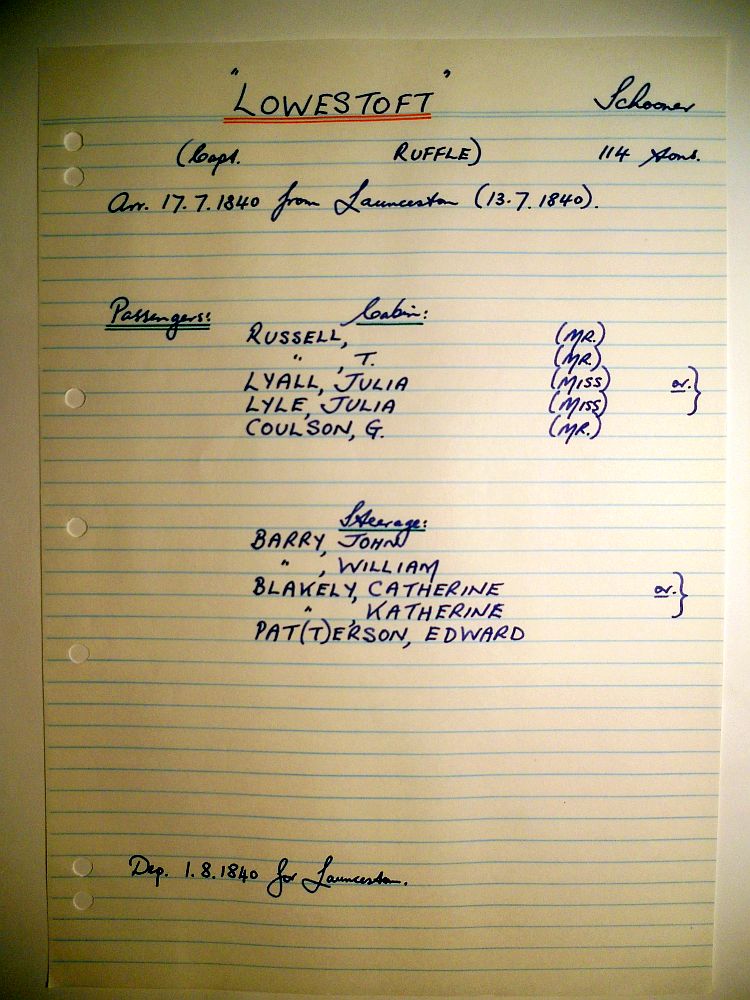 "LOWESTOFT" Schooner
(Capt. RUFFLE) 114 tons.
Arr. 17.7.1840 from Launceston (13.7.1840).
Passengers: Cabin:
RUSSELL, (MR.)
" , T. (MR.)
LYALL, JULIA (MISS) or. }
LYLE, JULIA (MISS)
COULSON, G. (MR.)
Steerage:
BARRY, JOHN
" , WILLIAM
BLAKELY, CATHERINE or. }
" , KATHERINE
PAT(T)ERSON, EDWARD
Dep. 1.8.1840 for Launceston.